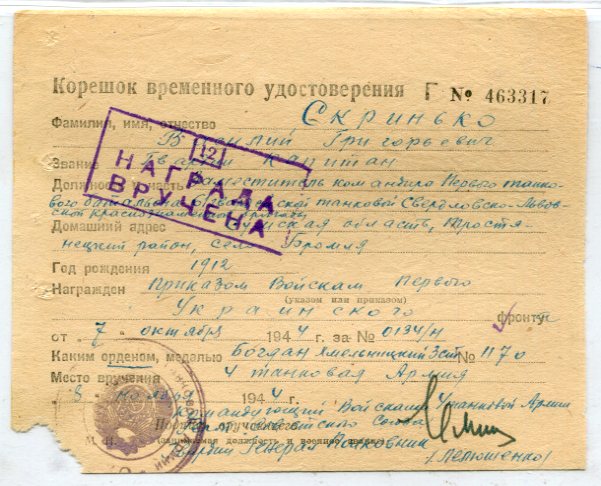 Корешок временного удостоверения Г № 463317
Фамилия, имя, отчество Скринько
Василий Григорьевич
Звание Гвардии капитан
12
НАГРАДА
ВРУЧЕНА
Должность, часть Заместитель командира Первого танко-
вого батальона танковой Свердловско-Львов-
ской краснознаменной бригады
Домашний адрес Сумская область, Тростя-
нецкий район, село Бромля
Год рождения 1912
Награжден Приказом Войскам Первого
(указом или приказом)
Украинского фронту
от „7“ октября 1944 г. за № 0134/н
Каким орденом, медалью Богдан Хмельницкий 3 ст № 1170
Место вручения 4 танковая Армия
„8“ ноября 1944 г.
Командующий Войсками 4 танковой Армии
Подпись вручившего
Советского Союза
М. П. (занимаемая должность и военное звание)
Гвардии Генерал Полковник
/Лелюшенко/